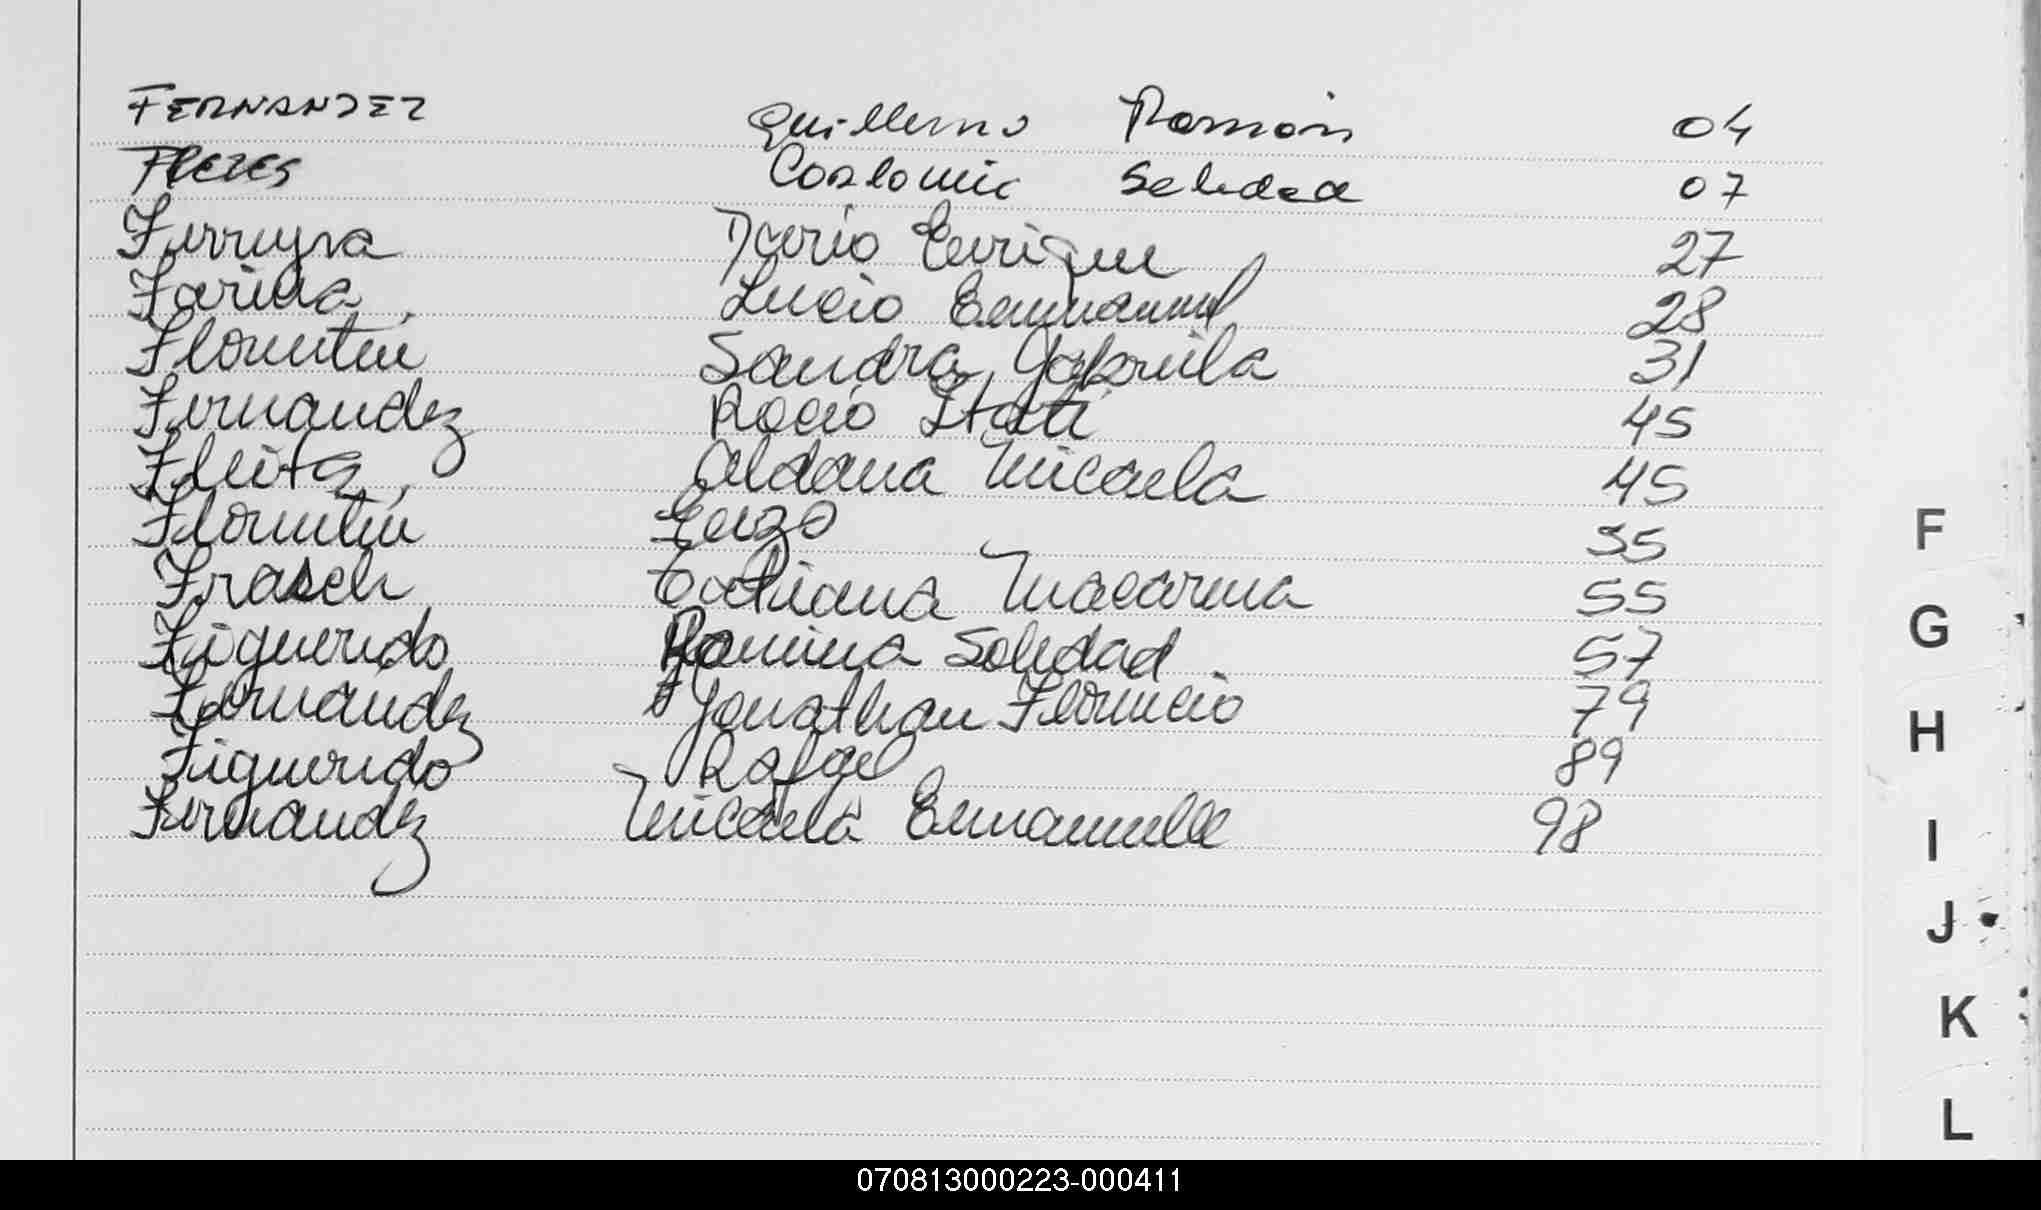 FERNANDEZ Guillermo Ramón 04
Soledad 07
Ferreyra Dario Enrique 27
Farina Lucio Emmanuel 28
Florentin Sandra Gabriela 31
Fernandez Rocio Itati 45
Fleita Aldana Micaela 45
Florentin Enzo 55
Frasch Tatiana Macarena 55
Figueredo Romina Soledad 57
Fernandez Jonathan Florencio 79
Figueredo Rafael 89
Fernandez Micaela Emmanuelle 98
F
G
H
I
J
K
L
070813000223-000411